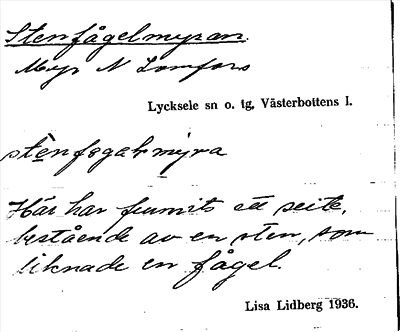 Stenfågelmyran.
Myr N Lomfors
Lycksele sn o. tg, Västerbottens l.
stenfogalmyra
Här har funnits ett seite,
bestående av en sten, som
liknade en fågel.
Lisa Lidberg 1936.